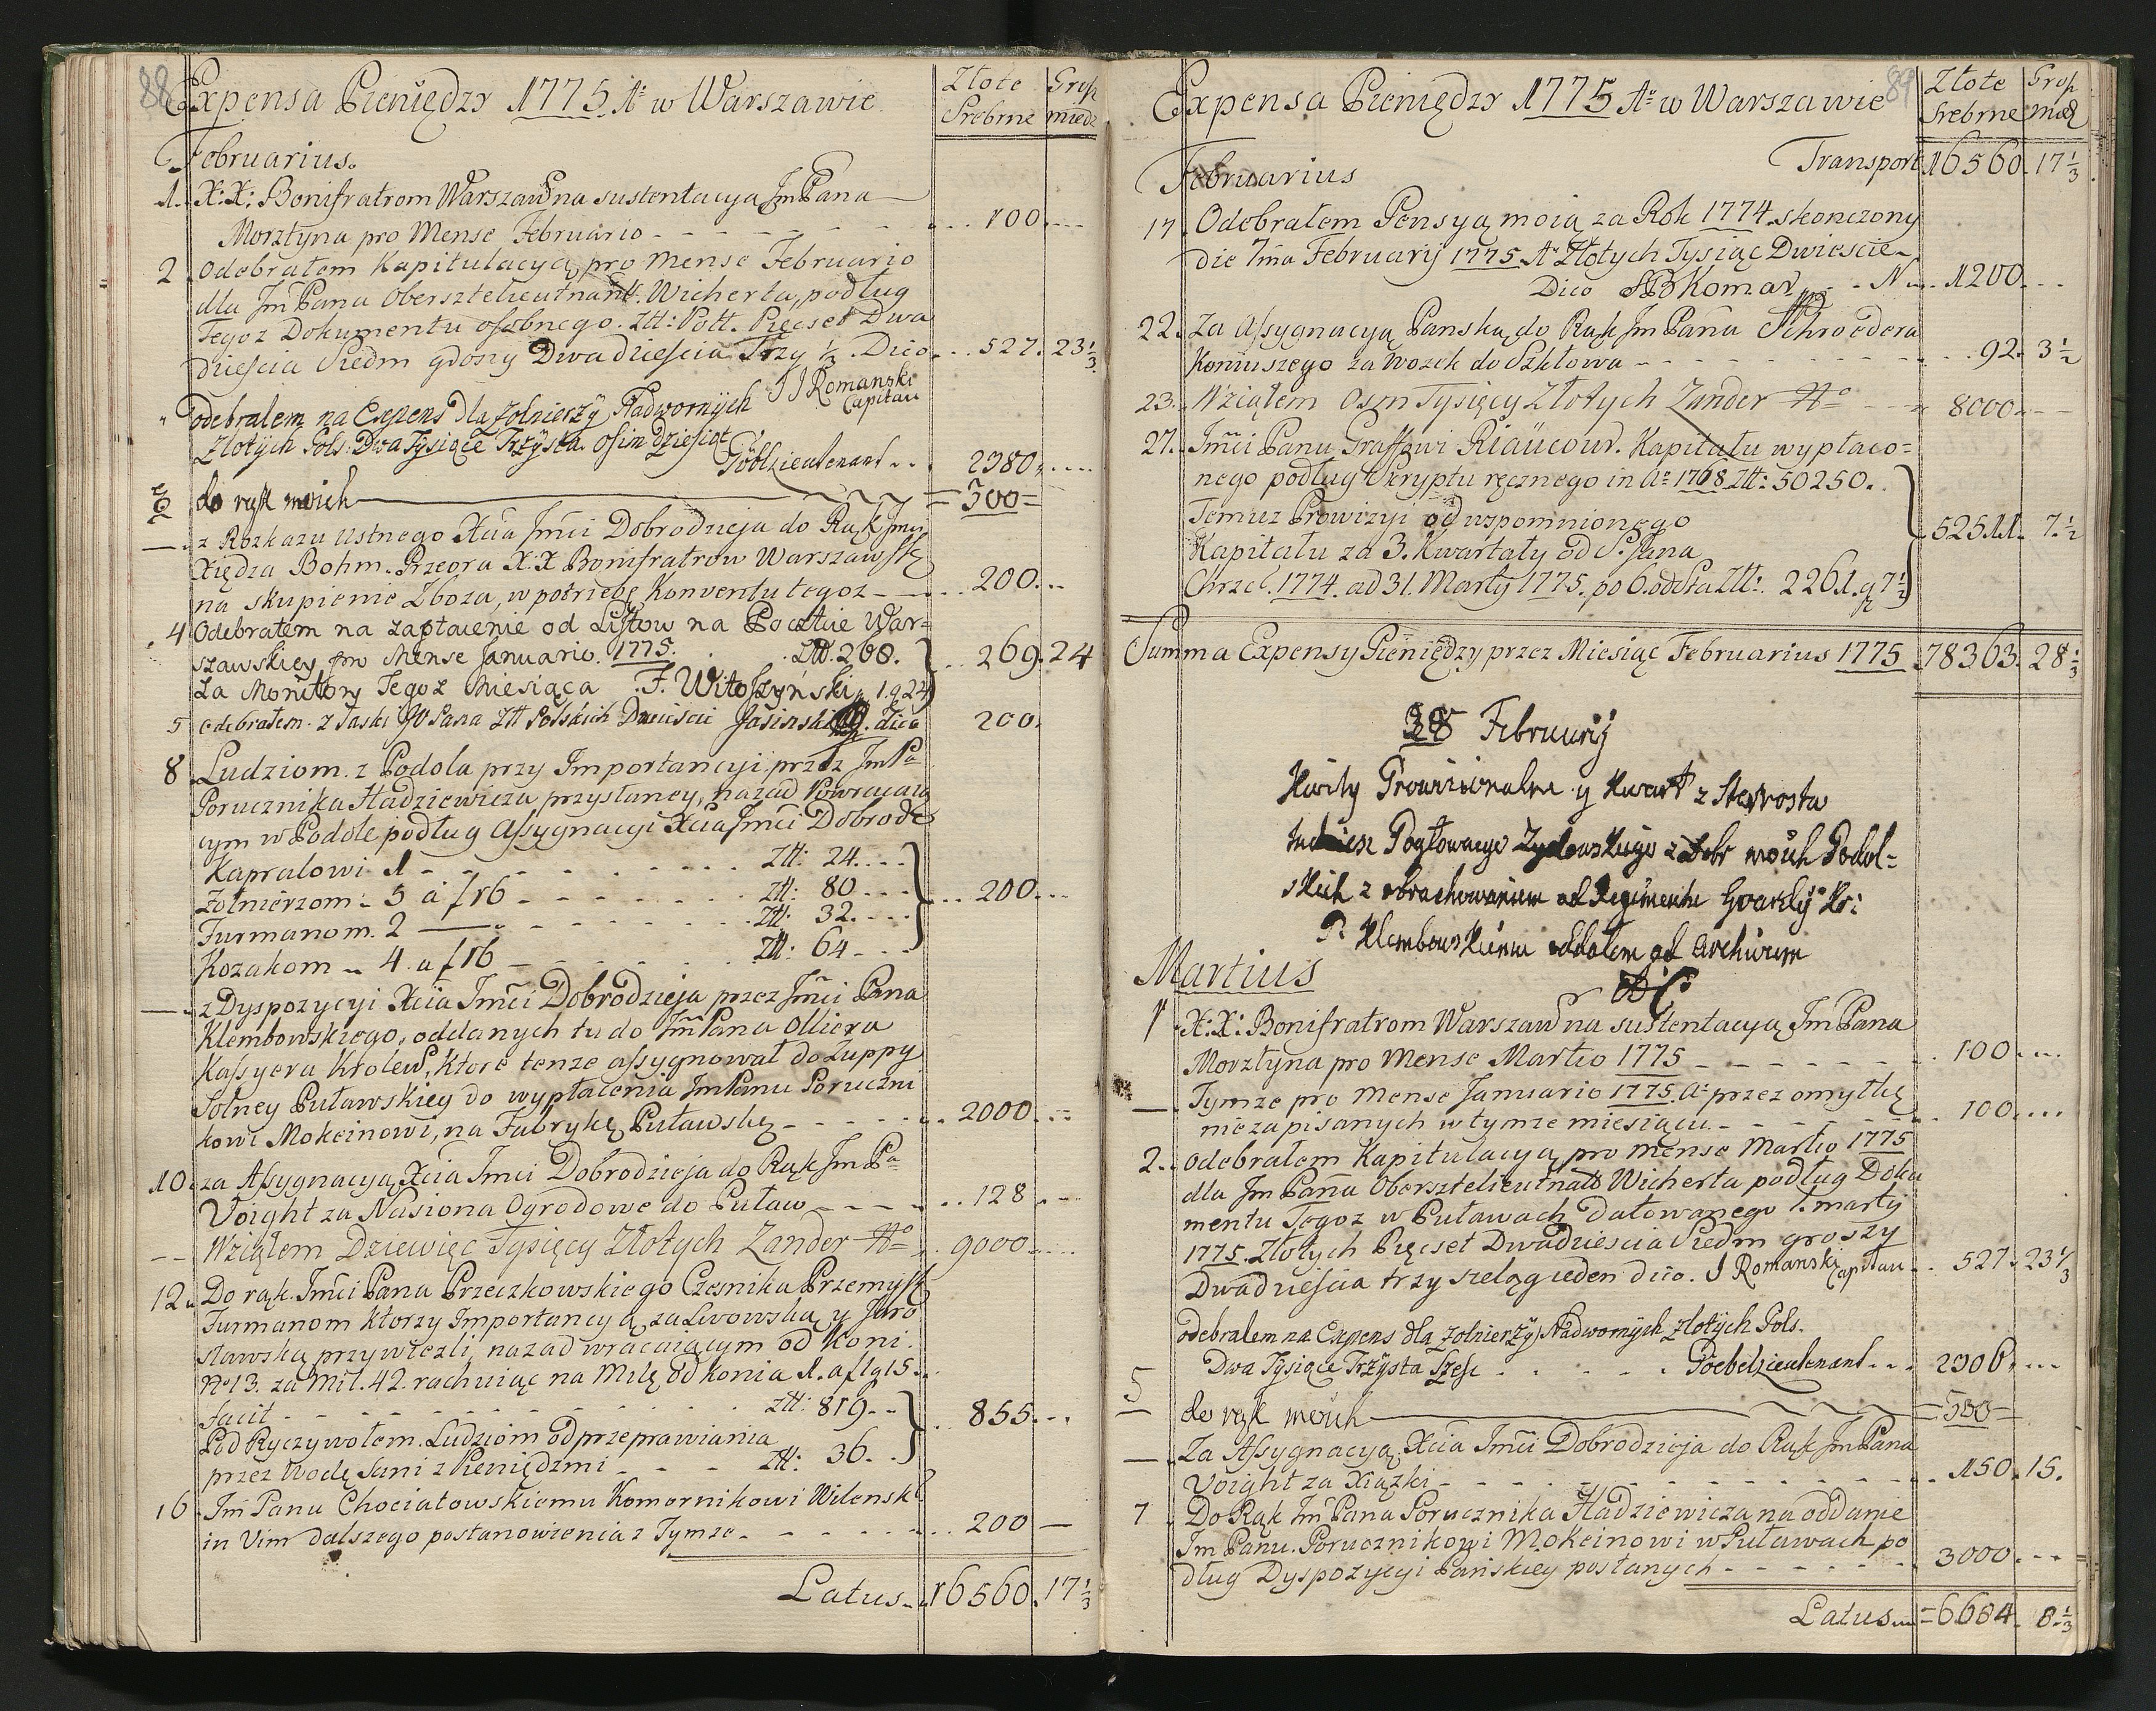 88
Expensa Pieniędzy 1775 Aº w Warszawie
Złote Grosz
Srebrne miedz
Februarius.
1. X: X: Bonifratrom Warszaw: na sustentacyą Jm Pana
Morsztyna pro Mense Februario - - - 100.
2 Odebrałem Kapitulacyą pro Mense Februario
dla Jm Pana Obersztelieutnant. Wicherta, podług
Tegoz Dokumentu osobnego. Złł: Poll. Pięcset Dwa
dziescia Siedm groszy Dwadziescia Trzy 1/2. Dico. 527. 23 1/3
J J Romanski
Capitan
" odebralem na Expens dla Zolnierzÿ Nadwornÿch
Zlotÿch Pols: Dwa Tÿsiące Trzÿsta osim dziesiąt
Göbel Lieutenant . . 2380.
do rąk moich = 500 =
z Rozkazu Ustnego Xcia Jmci Dobrodzieja do Rąk Jmci
Xiędza Bohm. Przeora X.X Bonifratrow Warszawsk
na skupienie Zboza, w potrzebę Konventu tegoz - - 200.
4 Odebrałem na zapłacenie od Listow na Poczttie War=
szawskiey pro Mense Januario. 1775. Złł. 268. 269. 24
Za Monitory Tegoz Miesiąca F. Witoszyński 1. g 24
5 odebrałem. z łaski JO Pana Złł Polskich Dwiescie Jasinski dico 200.
8 Ludziom. z Podola przy Importancyi przez Jm Pª
Porucznika Hadziewicza przysłaney, nazad Powracaią
cym w Podole podług Assygnacyi Xcia Jmci Dobrodz
Kapralowi 1 - - - Złł: 24.
Zołnierzom - 5 a f 16 - - - Złł: 80 200.
Furmanom. 2 - - - Złł: 32.
Kozakom - 4. a f 16 - - - Złł: 64
z Dyspozycyi Xcia Jmci Dobrodzieja przez Jmci Pana
Klembowskiego, oddanych tu do Jm Pana Olliera
Kassyera Krolew, Ktore tenze assygnował do Zuppy
Solney Puławskiey do wypłacenia Jm Panu Poruczni
kowi Mokeinowi, na Fabrykę Puławską - - - 2000.
10. za Assygnacyą Xcia Jmci Dobrodzieja do Rąk Jm Pª
Voight za Nasiona Ogrodowe do Puław - - - 128
Wziąłem Dziewięc Tysięcy Złotych Zander 9000
12. Do rąk. Jmci Pana Przeczkowskiego Czesnika Przemysk
Furmanom Ktorzy Importancyą za Lwowską y Jaro
sławską przywiezli, nazad wracaiącym od Koni.
Nº 13. za Mil. 42. rachuiąc na Milę od Konia 1. a f 1 g 15.
facit - - - Złł: 819 855.
Pod Ryczywołem. Ludziom od przeprawiania
przez Wodę Sani z Pieniędzmi - - - Złł: 36.
16. Jm Panu Chociatowskiemu Komornikowi Wilensk
in Vim dalszego postanowienia z Tymze - - - 200
Latus 16560. 17 1/3
89
Expensa Pieniędzy 1775 Aº w Warszawie
Złote Grosz
Srebrne mied
Transport 16560. 17 1/3
Februarius
17. Odebrałem Pensyą moią za Rok 1774. skonczony
die 7ma Februarij 1775 Aº Złotych Tysiąc Dwiescie
Dico Komar 1200.
22. Za Assygnacyą Panską do Rąk Jm Pana Schroedera
Koniuszego za Wozek do Szkłowa - - - 92. 3 1/2
23. Wziąłem Osm Tysięcy Złotych Zander 8000.
27. Jmci Panu Graffowi Riaücour. Kapitału wypłaco=
nego podług Skryptu ręcznego in Aº 1768 Złł: 50250.
Temuz Prowizyi od wspomnionego
Kapitału za 3. Kwartały od S. Jana 52511. 7 1/2
Chrzc. 1774. ad 31. Marty 1775. po 6. od Sta Złł: 2261. g 7 1/2
Summa Expensy Pieniędzy przez Miesiąc Februarius 1775 78363. 28 1/3
28 Februarij
Kwity Prowizionalne y Kwart z Starostw
tudziesz Pogłownego Zydowskiego z Dobr moich Podol=
skich z obrachowaniem od Regimentu Gvardij Kr:
P. Klembowskiemu oddałem ad Archivum
Martius
1 X: X: Bonifratrom Warszaw na sustentacyą Jm Pana
Morsztyna pro Mense Martio 1775 - - - 100.
Tymze pro Mense Januario 1775 Aº przez omyłkę
nie zapisanych w tymze miesiącu - - - 100.
2. Odebrałem Kapitulacyą pro Mense Martio 1775
dla Jm Pana Obersztelieutnant Wicherta podług Doku
mentu Tegoz w Puławach Datowanego 1. marty
1775. Złotych Pięcset Dwadziescia Siedm groszy
Dwadziescia trzy szeląg ieden dico. J Romanski Capitan 527. 23 1/3
odebralem na Expens dla Zolnierzÿ Nadwornÿch Zlotÿch Pols.
Dwa Tÿsiące Trzÿsta Szesc . . . Goebel Lieutenant . . 2306.
5 do rąk moich = 500 =
Za Assygnacyą Xcia Jmci Dobrodzieja do Rąk Jm Pana
Voight za Xiązki - - - 150. 15.
7 Do Rąk Jm Pana Porucznika Hadziewicza na oddanie
Jm Panu. Porucznikowi Mokeinowi w Puławach po
dług Dyspozycyi Pańskiey posłanych - - - 3000.
Latus 6684. 8 1/3